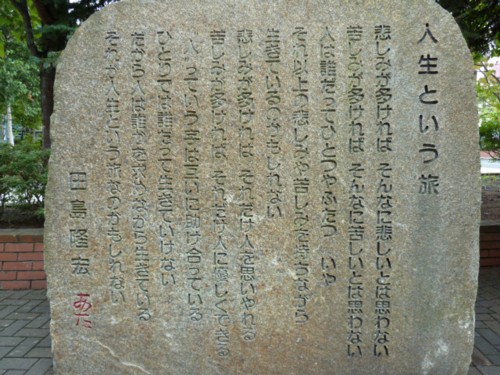 人生という旅
悲しみが多ければ そんなに悲しいとは思わない
苦しみが多ければ そんなに苦しいとは思わない
人は誰だってひとつやふたつ いや
それ以上の悲しみや苦しみを持ちながら
生きているのかもしれない
悲しみが多ければ それだけ人を思いやれる
苦しみが多ければ それだけ人に優しくできる
人という字は互いに助け合っている
ひとりでは誰だって生きていけない
だから人は誰かを求めながら生きている
それが人生という旅なのかもしれない
田島隆宏